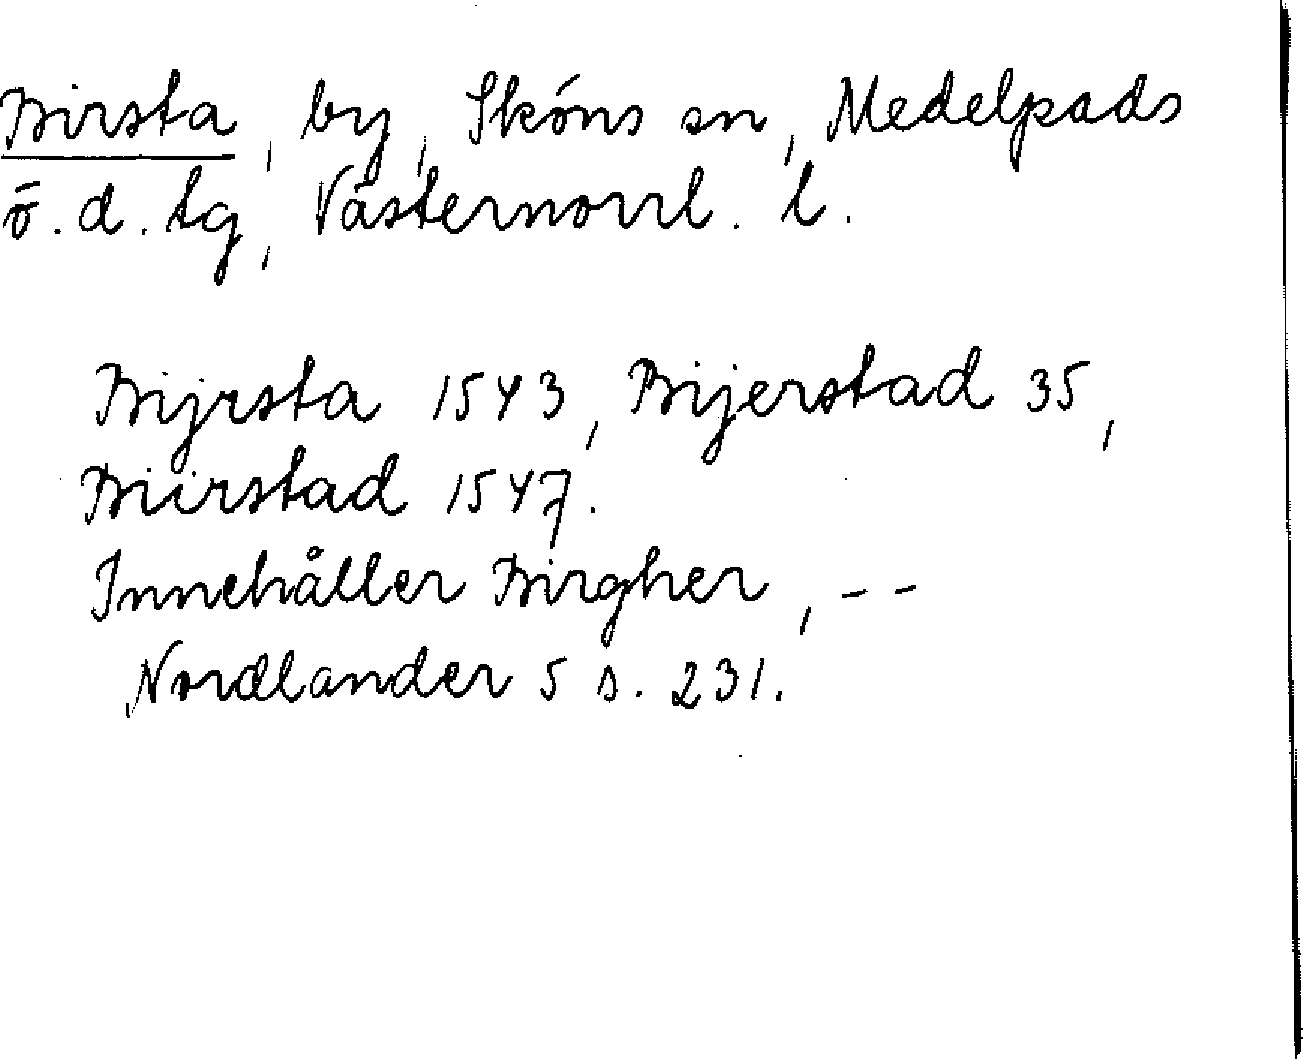 Birsta, by, Sköns sn, Medelpads
ö. d. tg, Västernorrl. l.
Bijrsta 1543, Bijerstad 35,
Biirstad 1547.
Innehåller Birgher, --
Nordlander 5 s. 231.